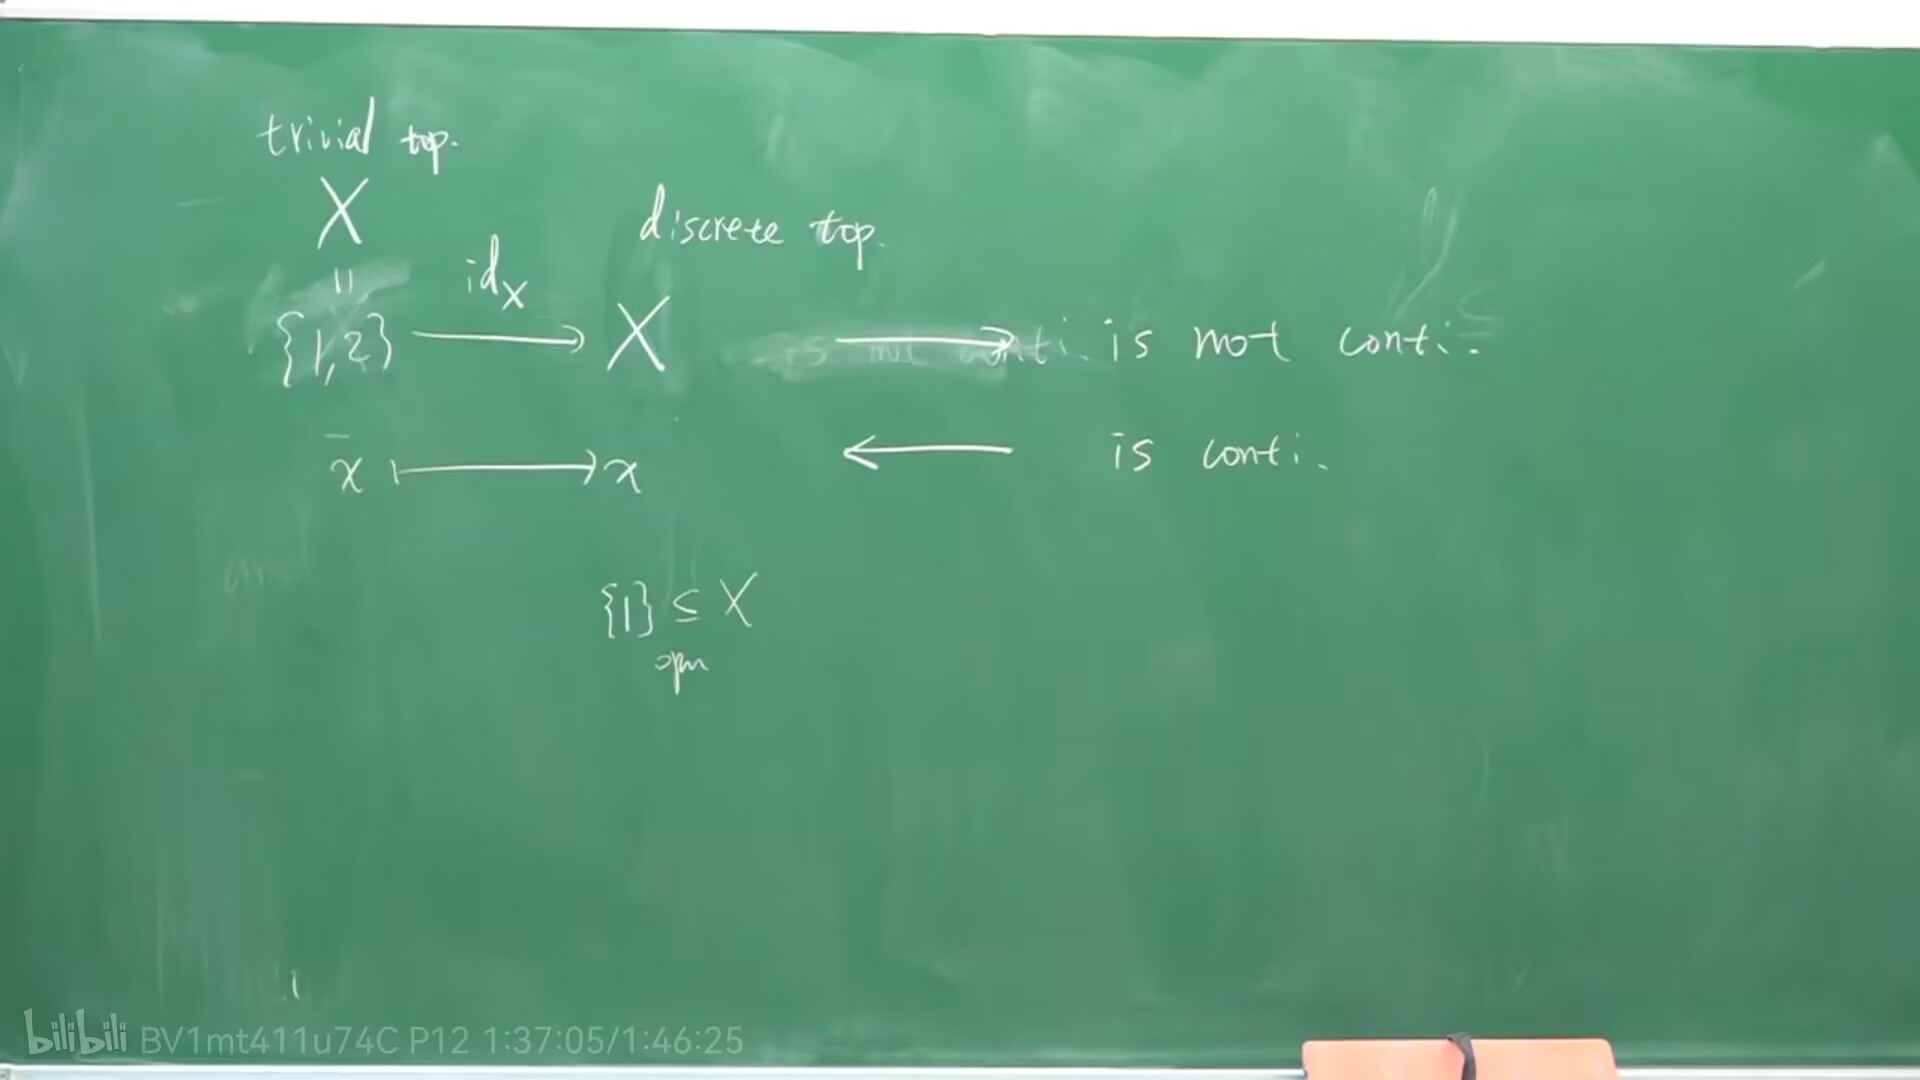 trivial top.
X
=
discrete top.
id_X
{1,2} ⟶ X ⟶ is not conti.
x ⟼ x ⟵ is conti.
{1} ⊆ X
open
bilibili BV1mt411u74C P12 1:37:05/1:46:25